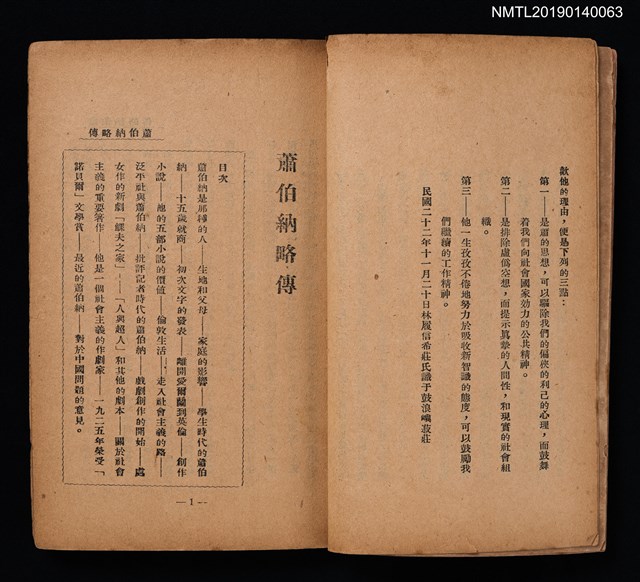 NMTL20190140063
献他的理由,便是下列的三點:
第一——是蕭的思想,可以驅除我們的偏狹的利己的心理,而鼓舞
着我們向社會國家効力的公共精神。
第二——是排除虛僞空想,而提示眞摯的人間性,和現實的社會組
織。
第三——他一生孜孜不倦地努力於吸收新智識的態度,可以鼓勵我
們繼續的工作精神。
民國二十二年十一月二十日林履信希莊氏識于鼓浪嶼菽莊
蕭伯納略傳
目次
蕭伯納是那種的人——生地和父母——家庭的影響——學生時代的蕭伯
納——十五歲就商——初次文字的發表——離開愛爾蘭到英倫——創作
小說——他的五部小說的價値——倫敦生活——走入社會主義的路——
泛平社與蕭伯納——批評記者時代的蕭伯納——戲劇創作的開始——處
女作的新劇「鰥夫之家」——「人與超人」和其他的劇本——關於社會
主義的重要著作——他是一個社會主義的作劇家——一九二五年榮受「
諾貝爾」文學賞——最近的蕭伯納——對於中國問題的意見。
蕭伯納略傳
—1—